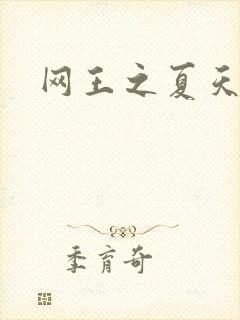 网王之夏天
季育奇